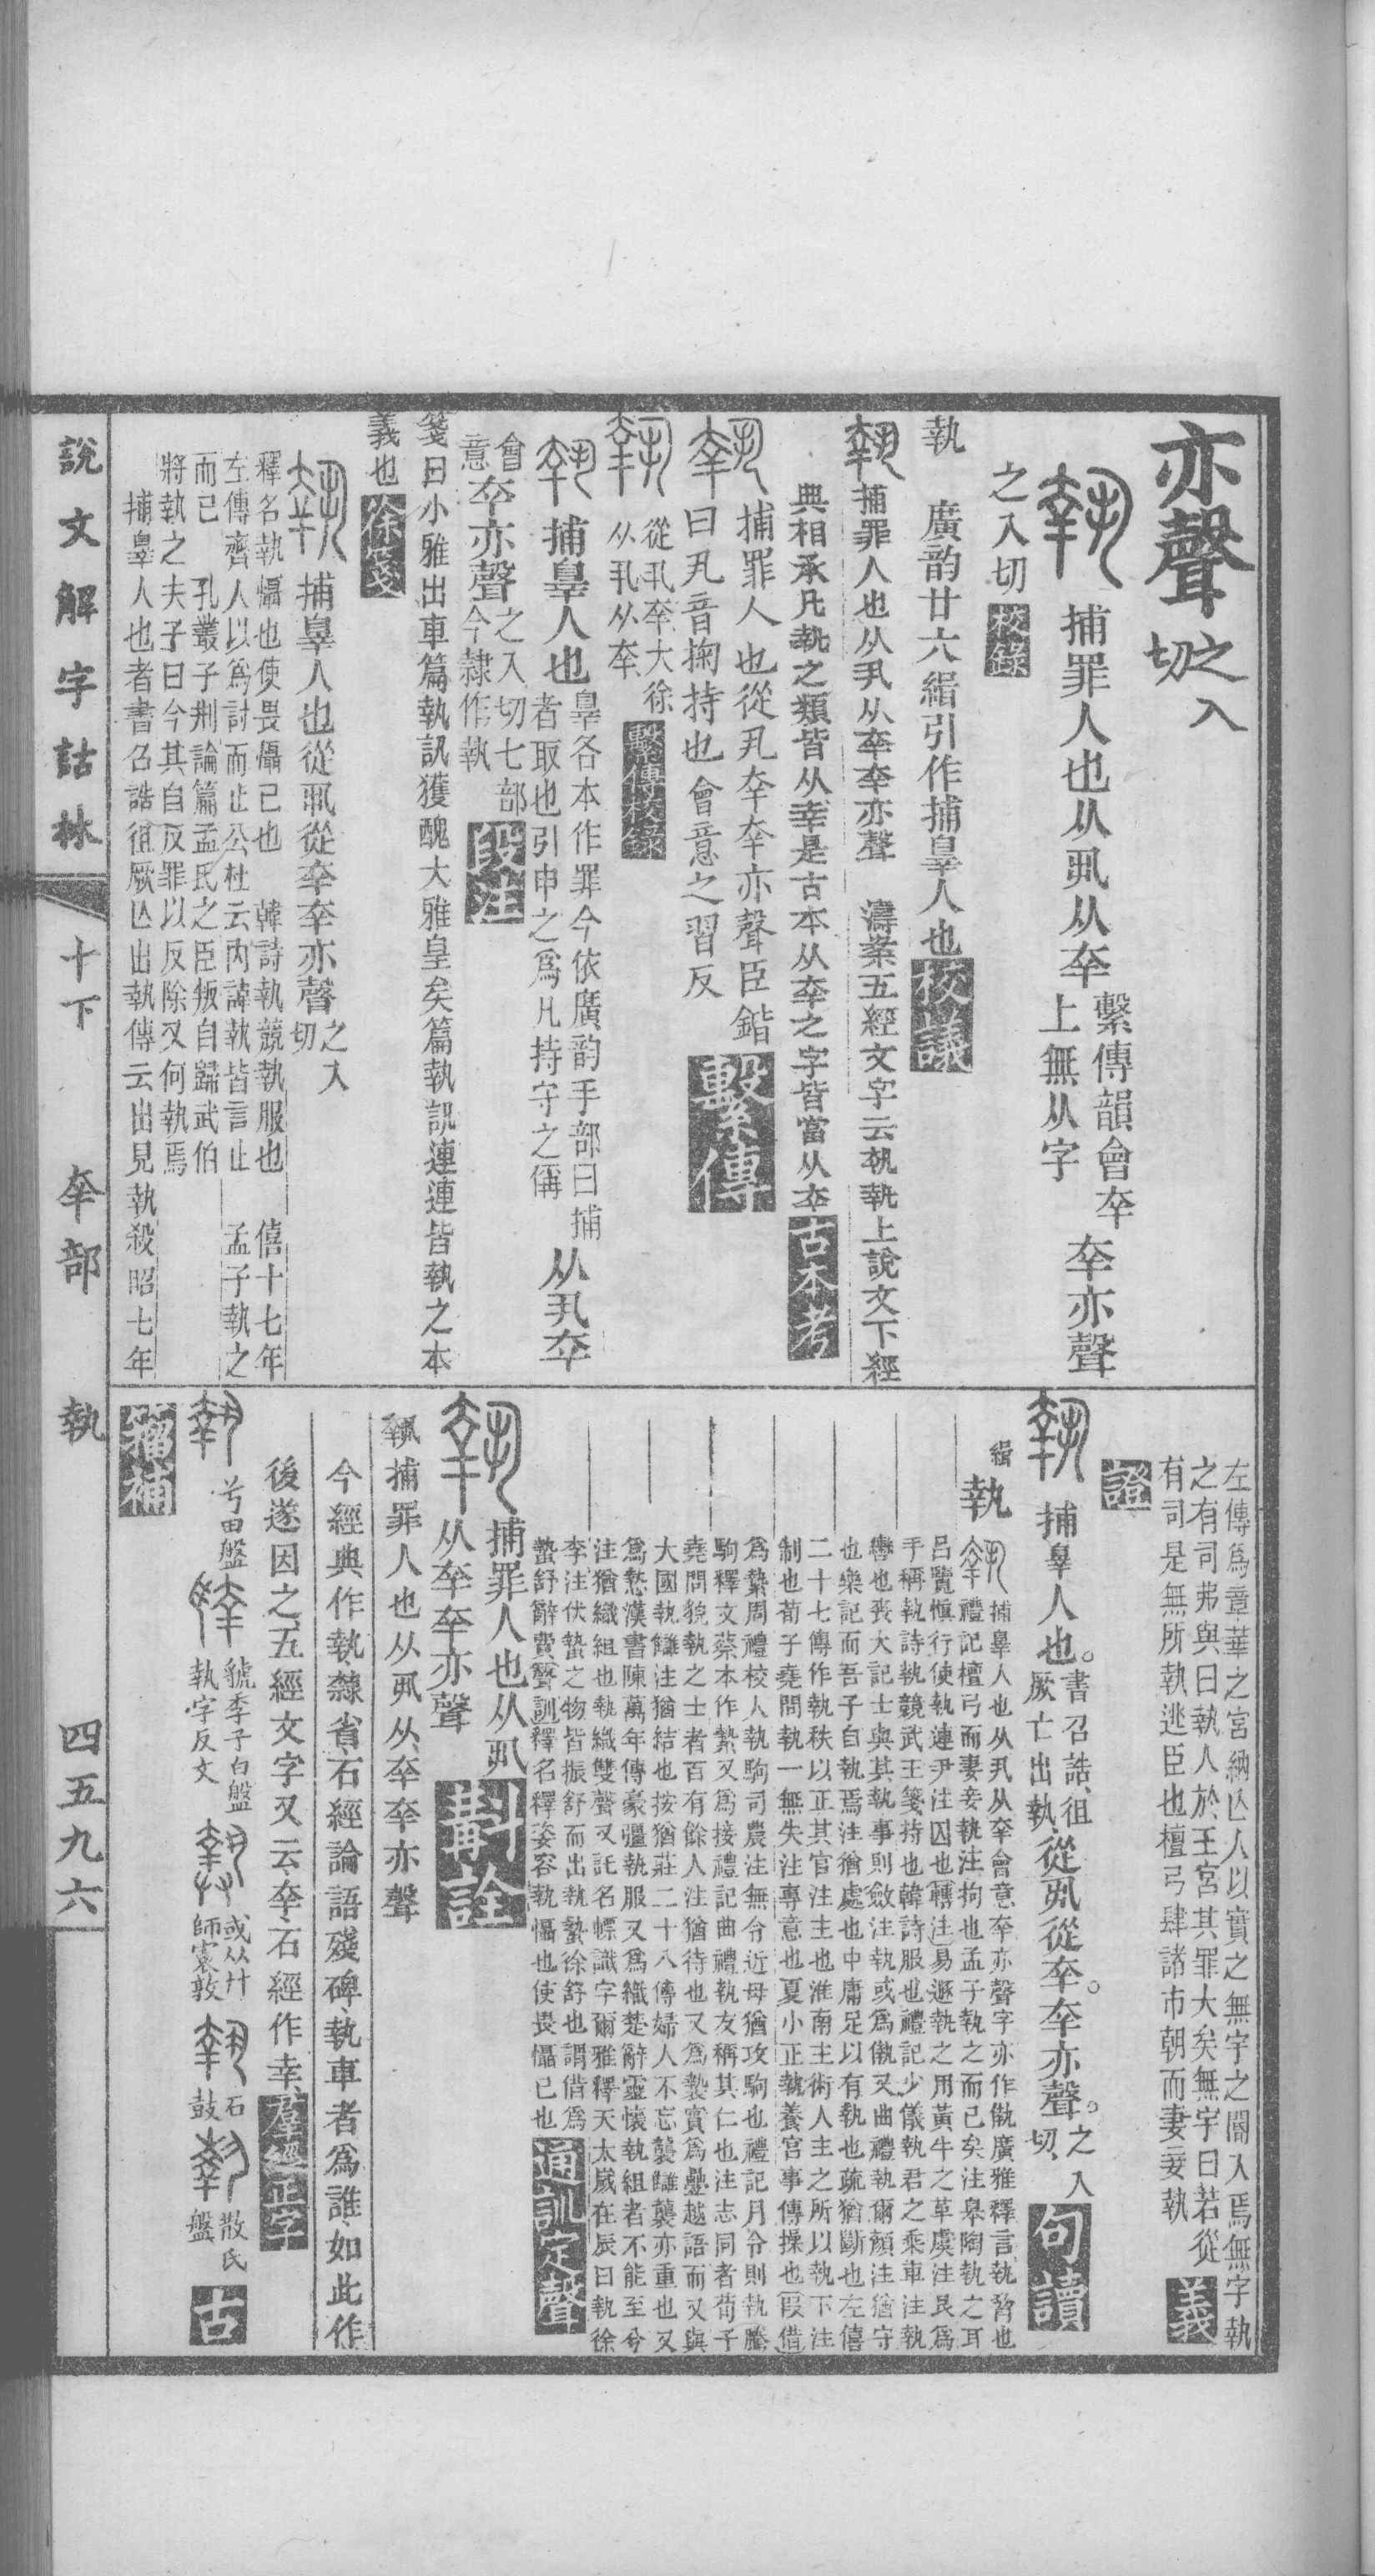 亦聲之入切
捕罪人也从丮从㚔繫傳韻會㚔上無从字㚔亦聲
之入切校錄
執 廣韵廿六緝引作捕辠人也校議
捕罪人也从丮从㚔㚔亦聲 濤案五經文字云執執上說文下經
典相承凡執之類皆从幸是古本从㚔之字皆當从㚔古本考
捕罪人也從丮㚔㚔亦聲臣鍇
曰丮音掬持也會意之習反繫傳
從丮㚔大徐从丮从㚔繫傳校錄
捕辠人也辠各本作罪今依廣韵手部曰捕者取也引申之爲凡持守之偁从丮㚔
會意㚔亦聲之入切七部今隸作執段注
箋曰小雅出車篇執訊獲醜大雅皇矣篇執訊連連皆執之本
義也徐箋
捕辠人也從丮從㚔㚔亦聲之入切
釋名執懾也使畏懾已也 韓詩執競執服也 僖十七年
左傳齊人以爲討而止公杜云內諱執皆言止 孟子執之
而已 孔叢子刑論篇孟氏之臣叛自歸武伯
將執之夫子曰今其自反罪以反除又何執焉
捕辠人也者書召誥徂厥亡出執傳云出見執殺昭七年
左傳爲章華之宮納亡人以實之無宇之閽入焉無宇執
之有司弗與曰執人於王宮其罪大矣無宇曰若從
有司是無所執逃臣也檀弓肆諸市朝而妻妾執義
證
捕辠人也。書召誥、徂厥亡出執、從丮從㚔。㚔亦聲。之入切、句讀
緝 執 捕辠人也从丮从㚔會意㚔亦聲字亦作㑺廣雅釋言執脅也
呂覽愼行使執連尹注囚也禮記檀弓而妻妾執注拘也孟子執之而已矣注皋陶執之耳
手稱執詩執競武王箋持也韓詩服也禮記少儀執君之乘車注執
轡也喪大記士與其執事則斂注執或爲㑺又曲禮執爾顏注猶守
也樂記而吾子自執焉注猶處也中庸足以有執也疏猶斷也左僖
二十七傳作執秩以正其官注主也淮南主術人主之所以執下注
制也荀子堯問執一無失注專意也夏小正執養宮事傳操也叚借
爲縶周禮校人執駒司農注無令近母猶攻駒也禮記月令則執騰
駒釋文蔡本作縶又爲接禮記曲禮執友稱其仁也注志同者荀子
堯問貌執之士者百有餘人注猶待也又爲贄實爲疊越語而又與
大國執讎注猶結也按猶莊二十八傳婦人不忘襲讎襲亦重也又
爲慹漢書陳萬年傳豪彊執服又爲織楚辭靈懷執組者不能至兮
注猶織組也執織雙聲又託名幖識字爾雅釋天太歲在辰曰執徐
李注伏蟄之物皆振舒而出執蟄徐舒也謂借爲
蟄舒辭賣聲訓釋名釋姿容執懾也使畏懾已也通訓定聲
捕罪人也从丮
从㚔㚔亦聲斠詮
捕罪人也从丮从㚔㚔亦聲
今經典作執、隸省、石經論語殘碑、執車者爲誰、如此作、
後遂因之、五經文字又云、㚔、石經作幸、羣經正字
兮田盤 虢季子白盤執字反文 或从廾師㝨敦 石鼓 散氏盤 古
籀補
說文解字詁林 十下 㚔部 執 四五九六